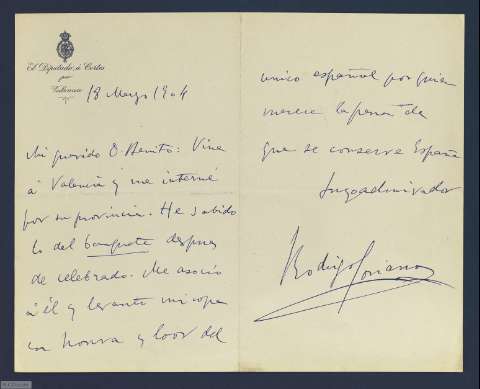 El Diputado á Cortes
por
Valencia
18 Marzo 1904
Mi querido D. Benito: Vine
á Valencia y me interné
por su provincia. He sabido
lo del banquete despues
de celebrado. Me asocio
á él y levanto mi copa
en honra y loor del
unico español por quien
merece la pena de
que se conserve España
Suyo admirador
Rodrigo Soriano